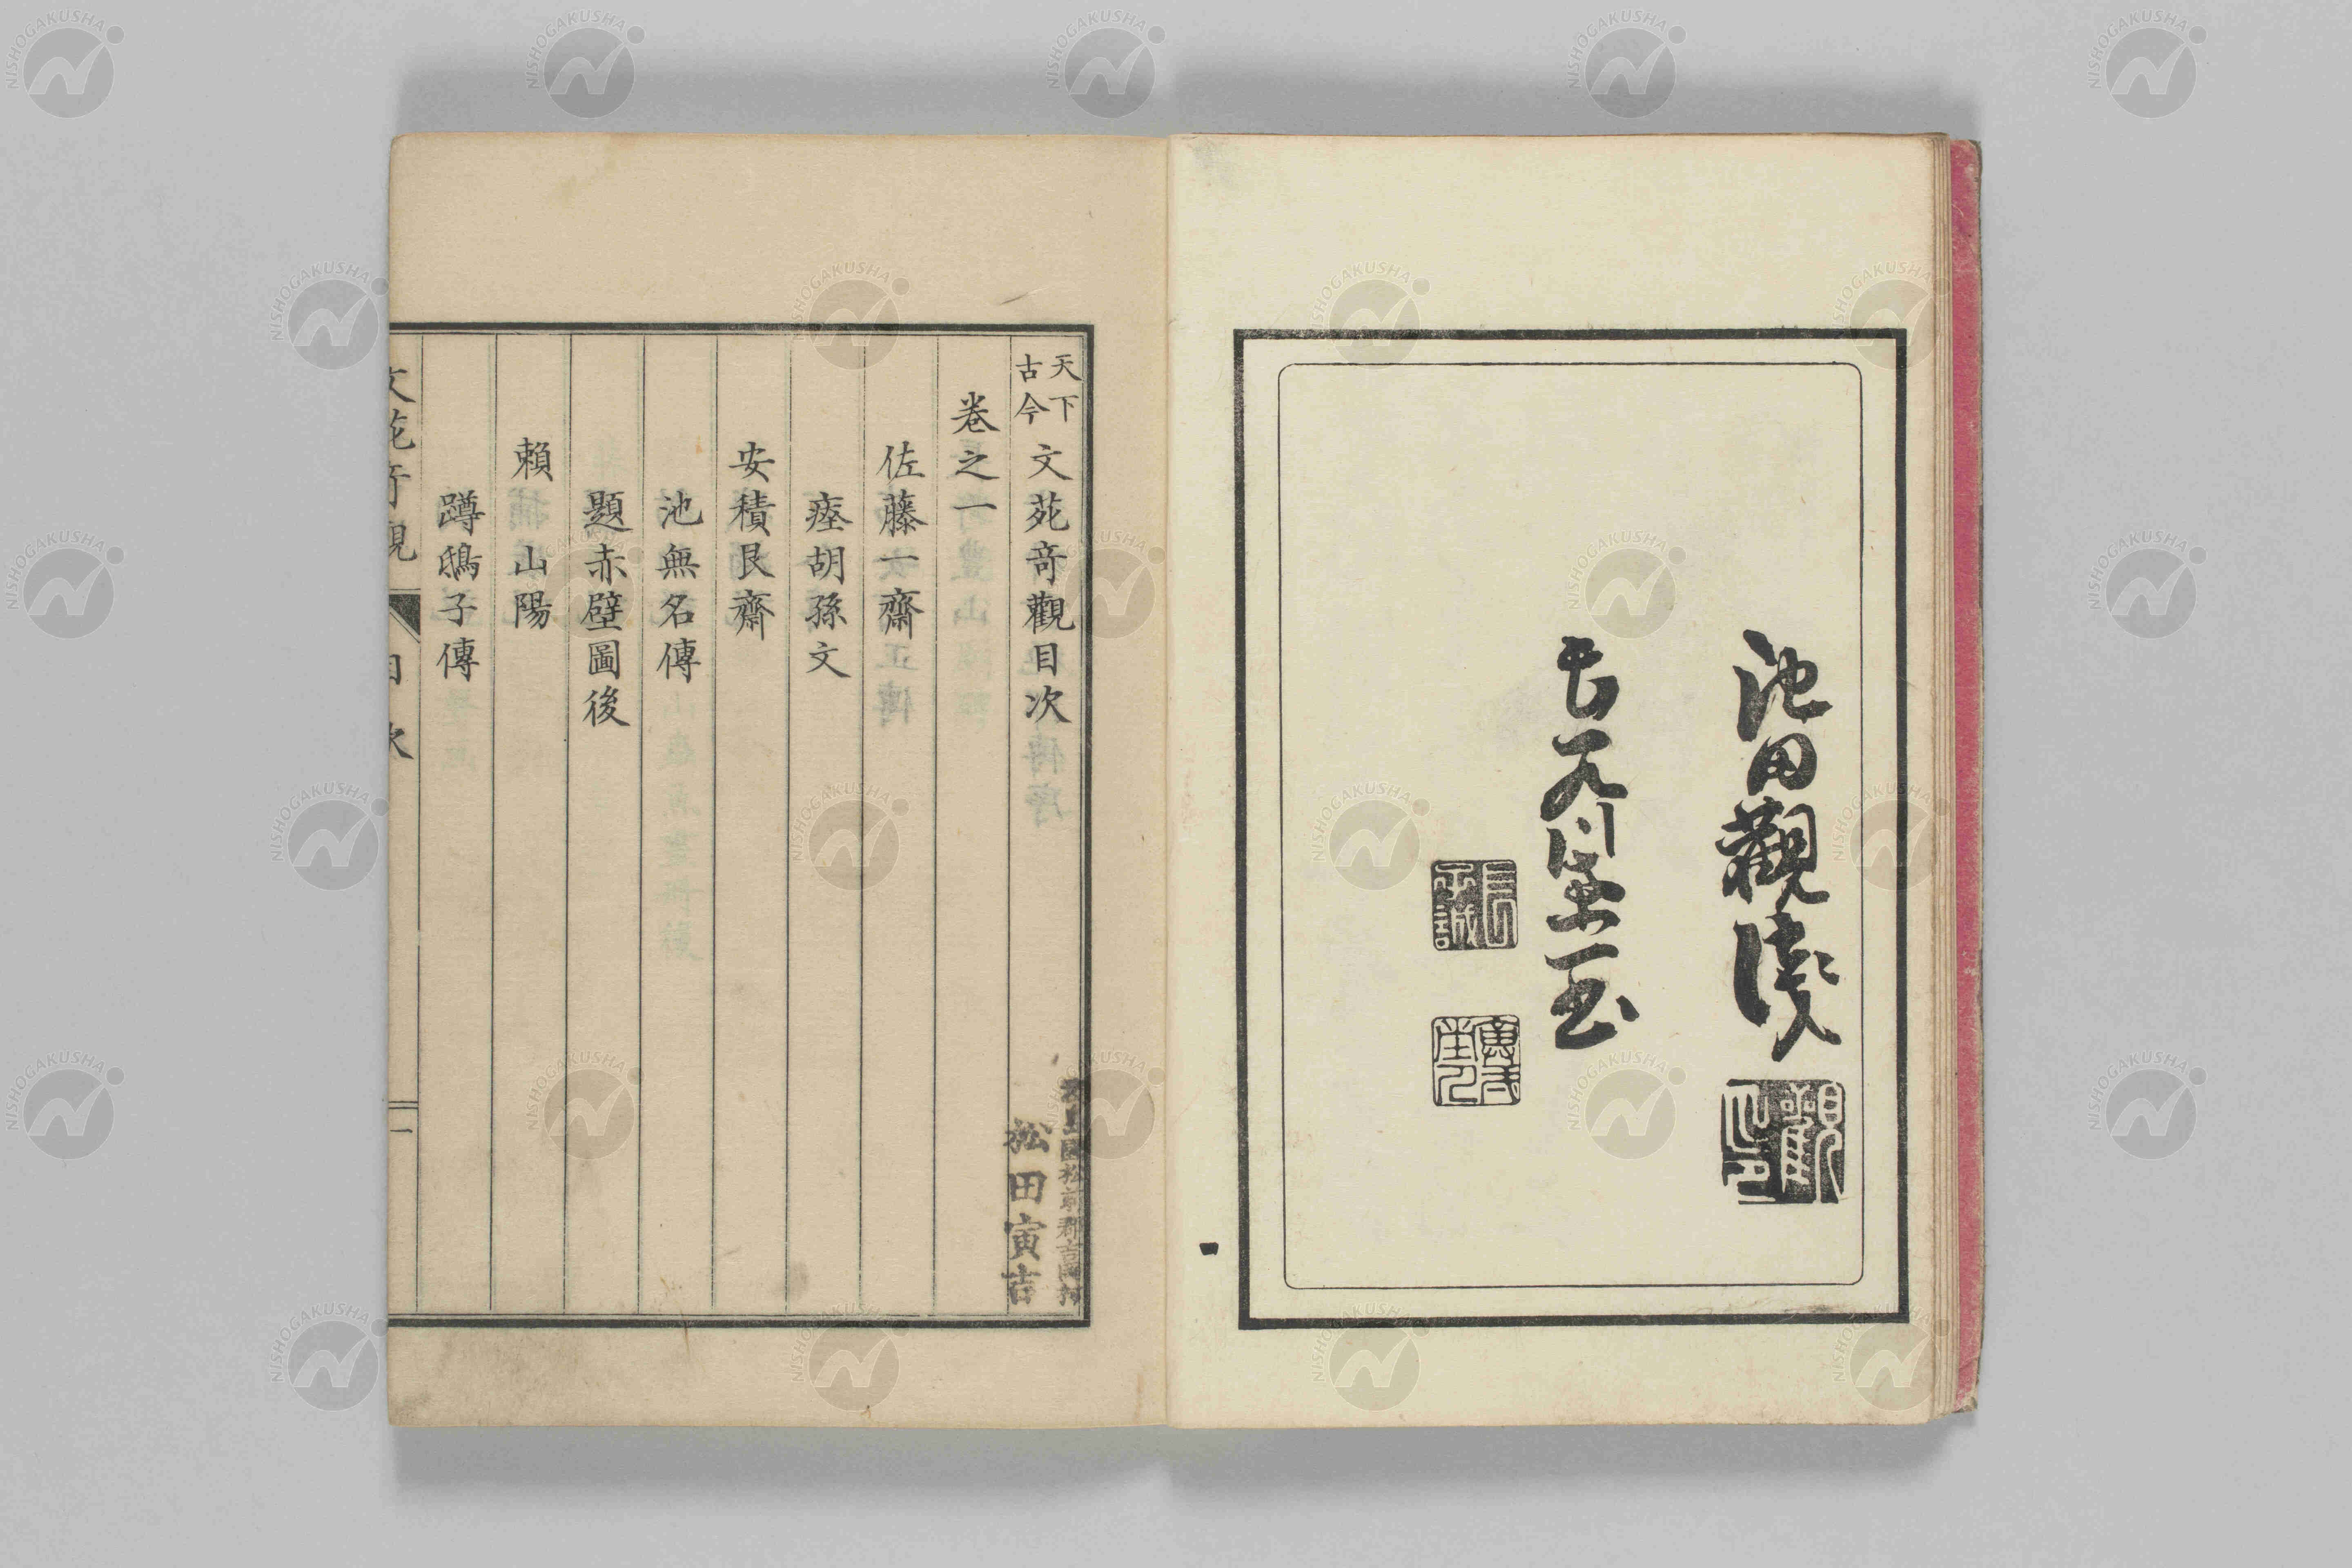 池田觀
天下
古今
文苑奇觀目次
卷之一
佐藤一齋
瘞胡孫文
安積艮齋
池無名傳
題赤壁圖後
賴山陽
蹲鴟子傳
松田寅吉
文苑奇觀
目次
一
NISHOGAKUSHA